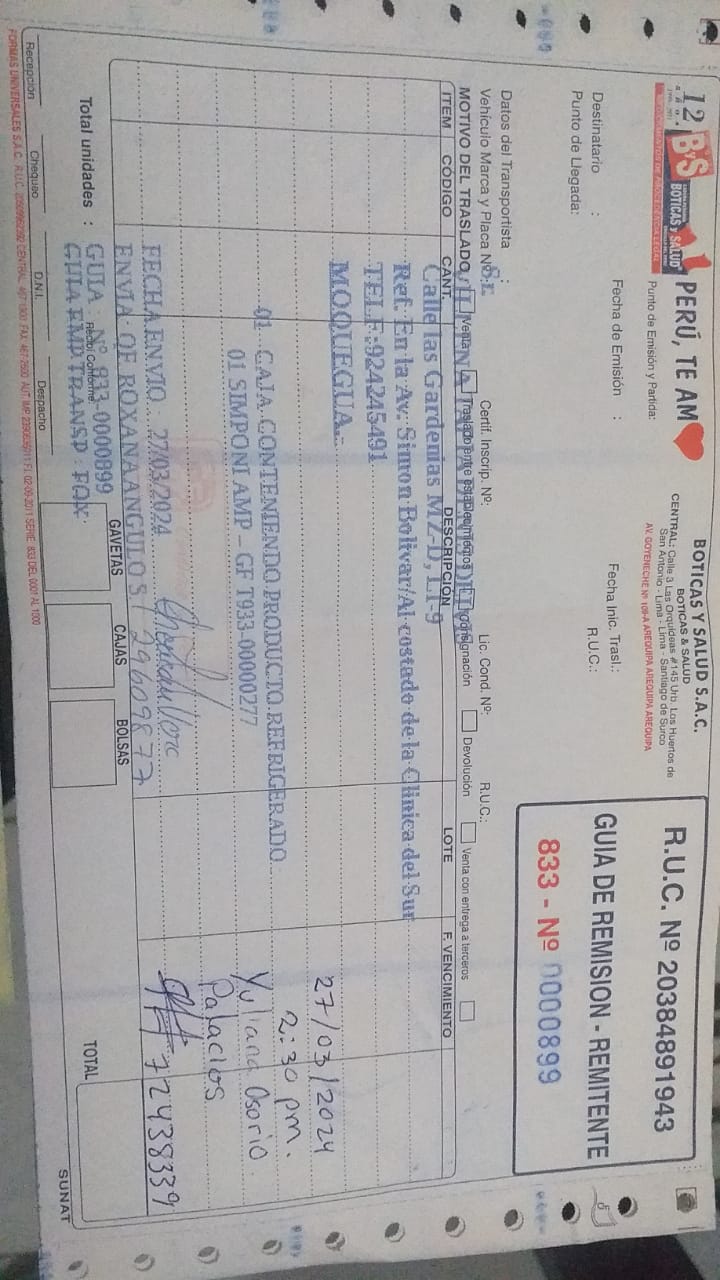 12 AÑOS
ByS
BOTICAS y SALUD
MEDICAMENTOS DE PROCEDENCIA LEGAL
PERÚ, TE AM
BOTICAS Y SALUD S.A.C.
BOTICAS & SALUD
CENTRAL: Calle 3 Las Orquideas #145 Urb. Los Huertos de
San Antonio - Lima - Lima - Santiago de Surco
Punto de Emisión y Partida:
AV. GOYENECHE Nº 109-A AREQUIPA AREQUIPA AREQUIPA
R.U.C. Nº 20384891943
GUIA DE REMISION - REMITENTE
833 - Nº 0000899
Fecha de Emisión :
Fecha Inic. Trasl.:
Destinatario :
R.U.C.:
Punto de Llegada:
Datos del Transportista :
R.U.C.:
Vehículo Marca y Placa Nº:
Certif. Inscrip. Nº:
Lic. Cond. Nº:
MOTIVO DEL TRASLADO: Venta Traslado entre establecimientos Consignación Devolución Venta con entrega a terceros
ITEM CÓDIGO CANT. DESCRIPCIÓN LOTE F. VENCIMIENTO
Calle las Gardenias MZ-D, LT-9
Ref: En la Av. Simon Bolivar/Al costado de la Clinica del Sur
TELF:924245491
MOQUEGUA.-
27/03/2024
01 CAJA CONTENIENDO PRODUCTO REFRIGERADO
2:30 pm.
01 SIMPONI AMP – GF T933-00000277
Yuliana Osorio
Palacios
FECHA ENVIO : 27/03/2024
72438339
ENVIA: QF ROXANA ANGULO S / 29609877
GUIA : Nº 833-0000899
GUIA EMP TRANSP : FQX
Recibí Conforme
Total unidades :
GAVETAS
CAJAS
BOLSAS
TOTAL
Recepción Chequeo D.N.I. Despacho
SUNAT
FORMAS UNIVERSALES S.A.C. R.U.C.